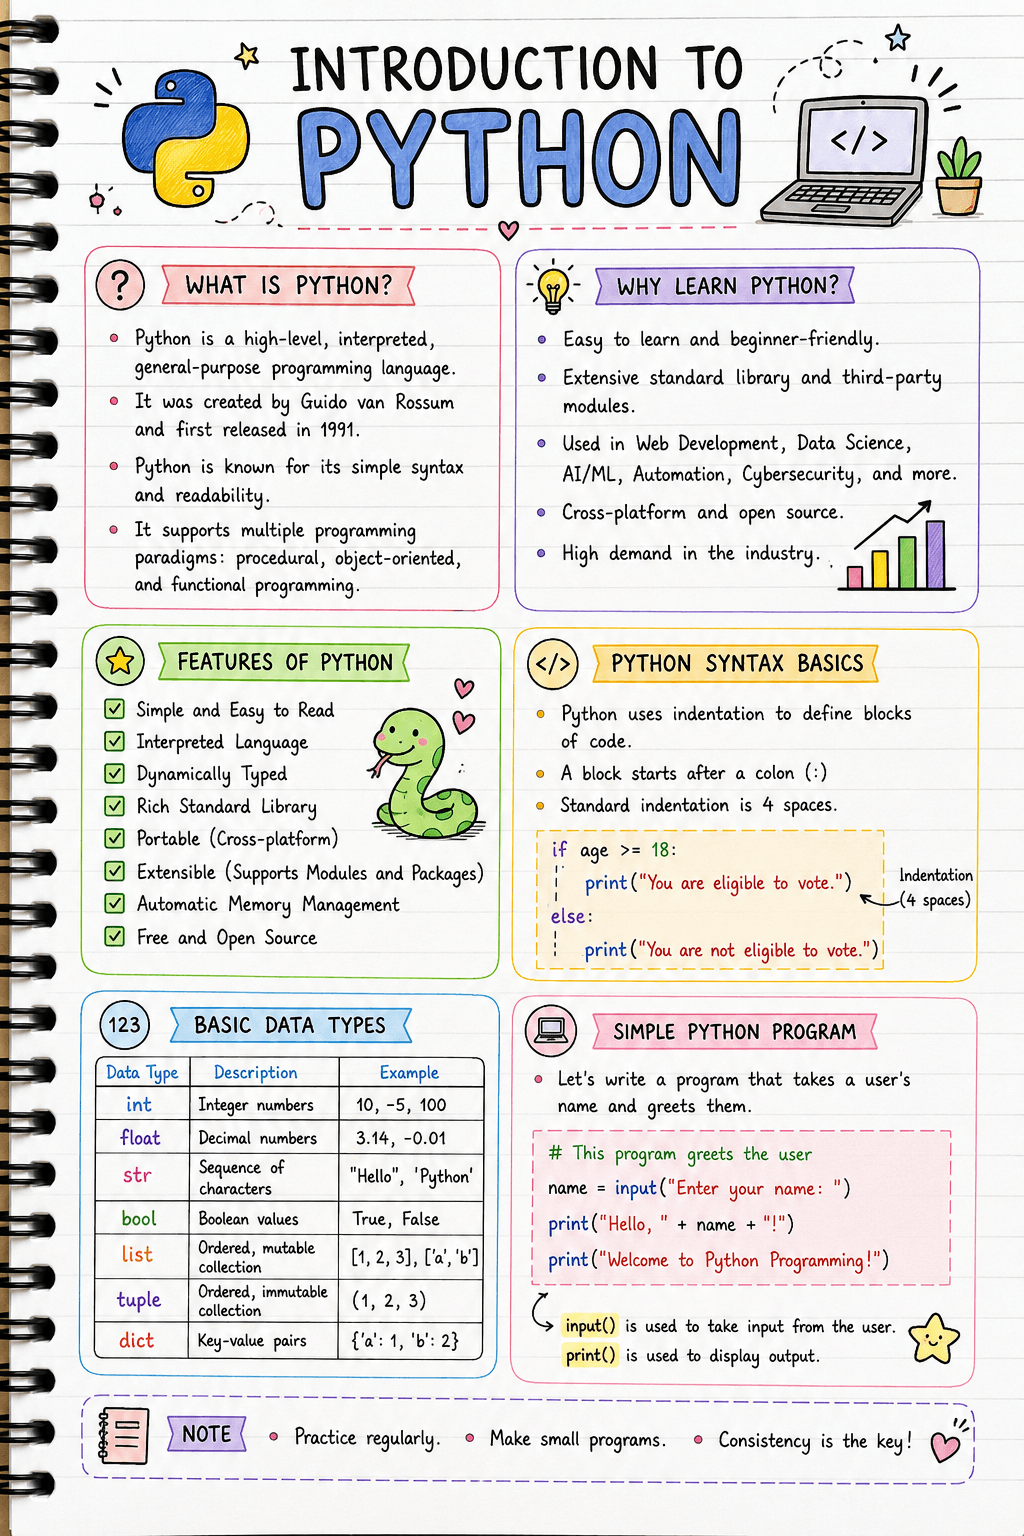 INTRODUCTION TO
PYTHON
</>
?
WHAT IS PYTHON?
Python is a high-level, interpreted,
general-purpose programming language.
It was created by Guido van Rossum
and first released in 1991.
Python is known for its simple syntax
and readability.
It supports multiple programming
paradigms: procedural, object-oriented,
and functional programming.
WHY LEARN PYTHON?
Easy to learn and beginner-friendly.
Extensive standard library and third-party
modules.
Used in Web Development, Data Science,
AI/ML, Automation, Cybersecurity, and more.
Cross-platform and open source.
High demand in the industry.
FEATURES OF PYTHON
Simple and Easy to Read
Interpreted Language
Dynamically Typed
Rich Standard Library
Portable (Cross-platform)
Extensible (Supports Modules and Packages)
Automatic Memory Management
Free and Open Source
</>
PYTHON SYNTAX BASICS
Python uses indentation to define blocks
of code.
A block starts after a colon (:)
Standard indentation is 4 spaces.
if age >= 18:
print("You are eligible to vote.")
else:
print("You are not eligible to vote.")
Indentation
(4 spaces)
123
BASIC DATA TYPES
Data Type Description Example
int Integer numbers 10, -5, 100
float Decimal numbers 3.14, -0.01
str Sequence of characters "Hello", 'Python'
bool Boolean values True, False
list Ordered, mutable collection [1, 2, 3], ['a','b']
tuple Ordered, immutable collection (1, 2, 3)
dict Key-value pairs {'a': 1, 'b': 2}
SIMPLE PYTHON PROGRAM
Let's write a program that takes a user's
name and greets them.
# This program greets the user
name = input("Enter your name: ")
print("Hello, " + name + "!")
print("Welcome to Python Programming!")
input() is used to take input from the user.
print() is used to display output.
NOTE
Practice regularly.
Make small programs.
Consistency is the key!